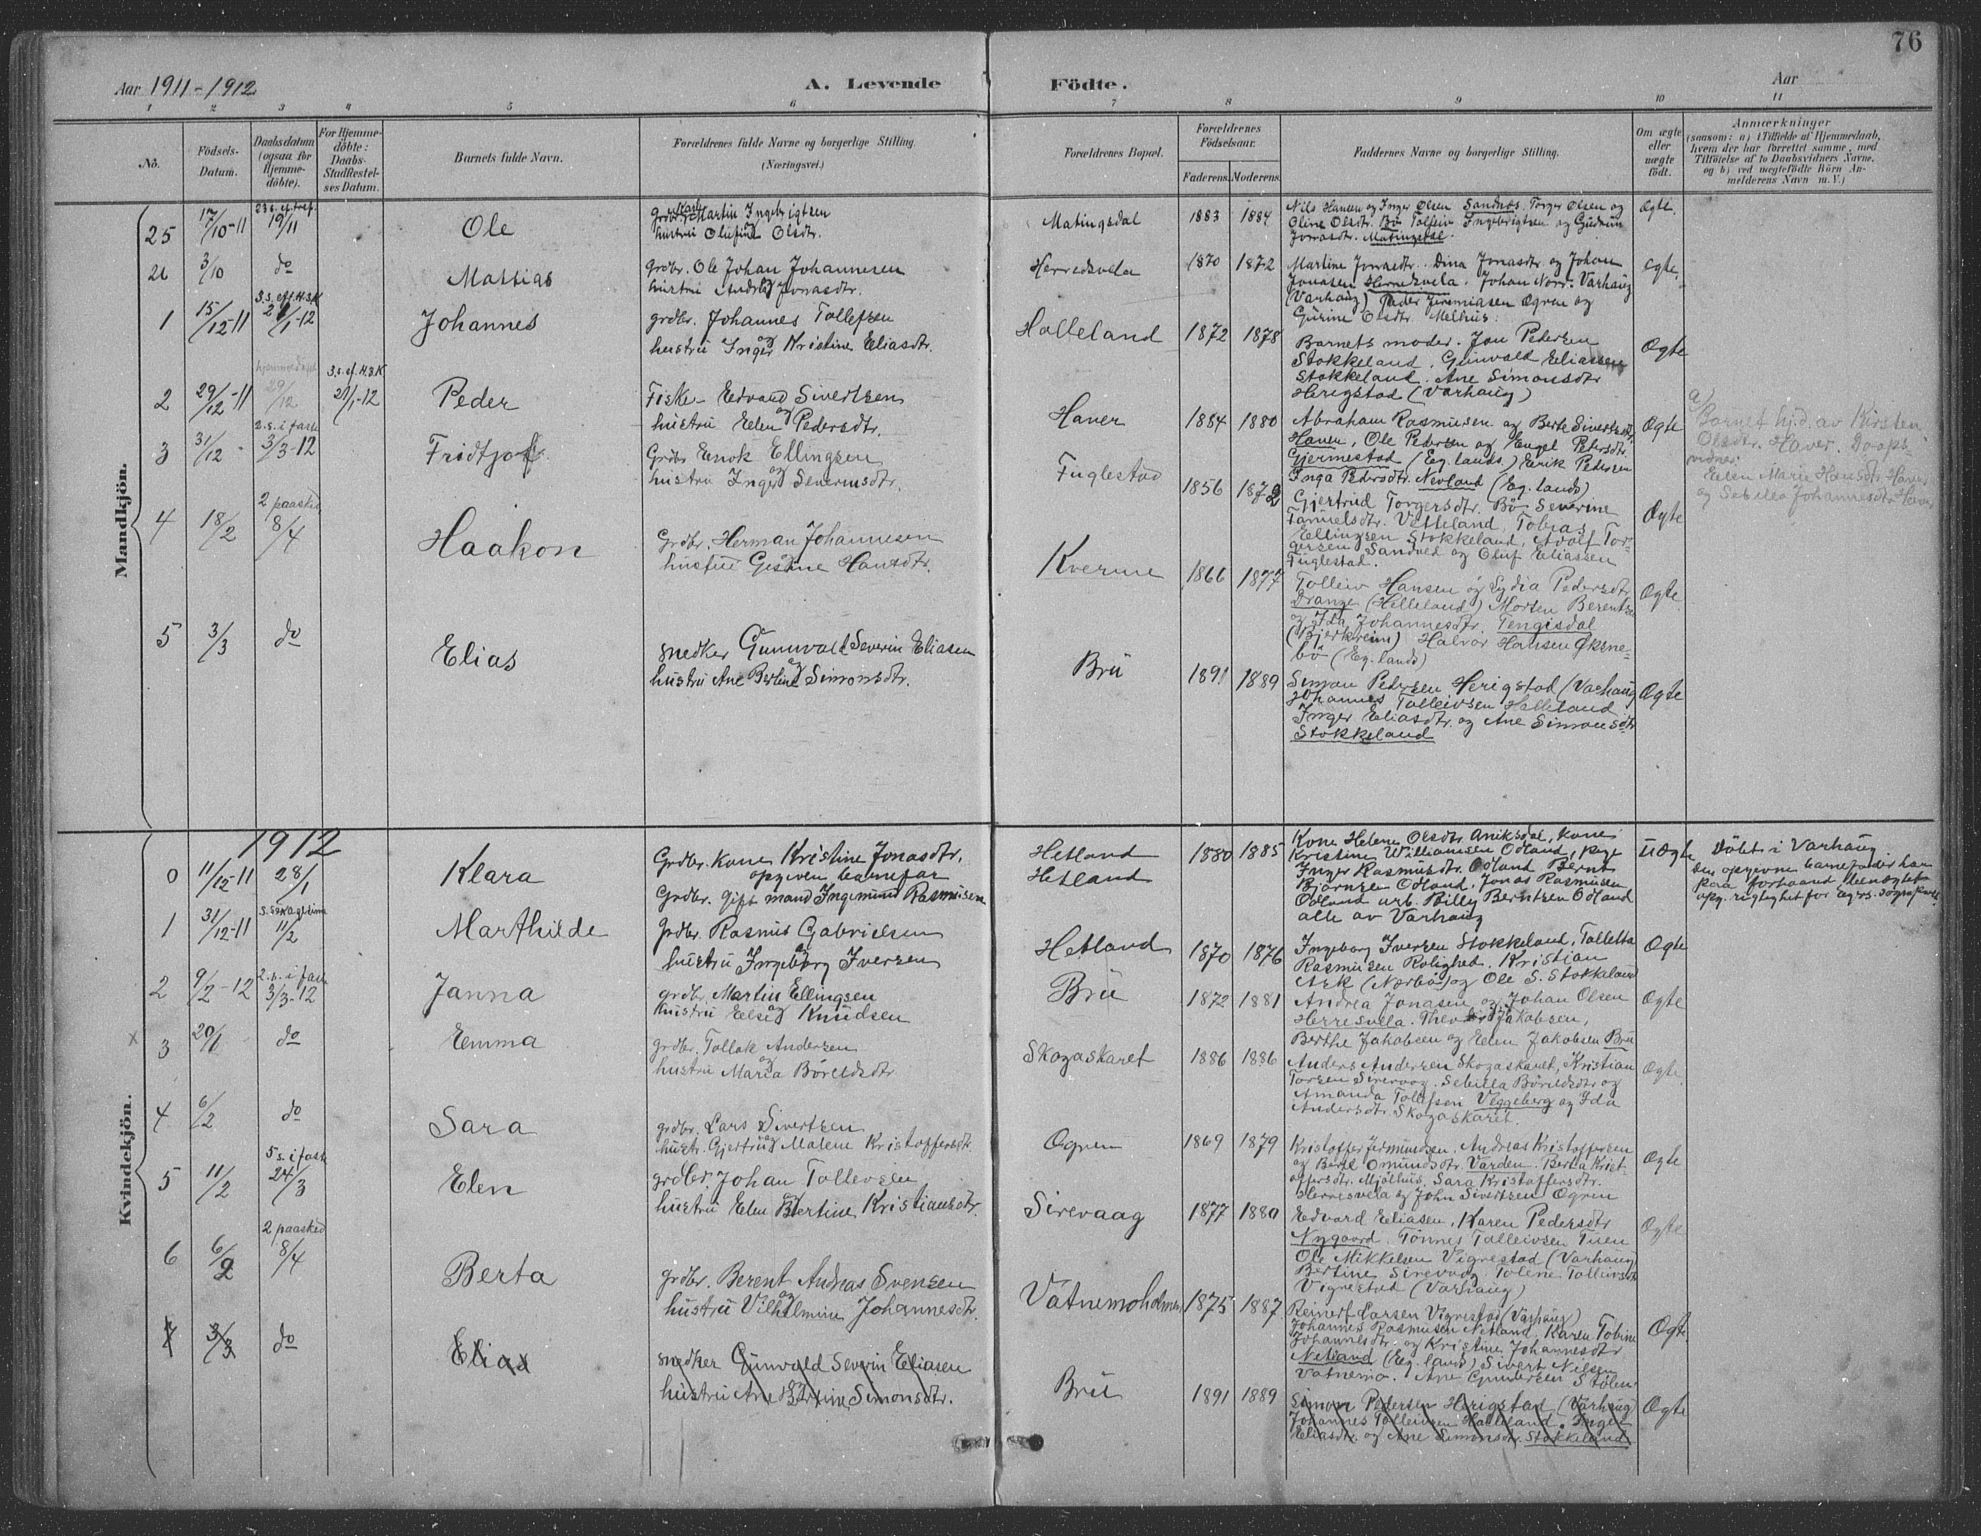 76
Aar 1911-1912
A. Levende Födte.
Aar
1 2 3 4 5 6 7 8 9 10 11
No.
Födsels-Datum.
Daabsdatum (ogsaa for Hjemmedöbte).
For Hjemmedöbte: Daabs-Stadfæstelses Datum.
Barnets fulde Navn.
Forældrenes fulde Navne og borgerlige Stilling (Næringsvei.)
Forældrenes Bopæl.
Forældrenes Födselsaar.
Faderens. Moderens.
Faddernes Navne og borgerlige Stilling.
Om ægte eller uægte födt.
Anmærkninger
(saasom: a) i Tilfælde af Hjemmedaab, hvem der har forrettet samme, med Tilföielse af to Daabsvidners Navne, og b) ved uægtefödte Börn Anmelderens Navn m. V.)
Mandkjön.
25 17/10-11 23 s. ef. tref. 19/11 Ole
Grdbr. Karl Martin Ingebrigtsen
hustru Olufine Olsdtr.
Matingsdal 1883 1884
Nils Hansen og Inger Olsen Sandnes. Torger Olsen og
Oline Olsdtr. Bö Tolleiv Ingebrigtsen og Gudrun
Jonasdtr. Matingsdal.
Ægte.
3/10 do Mattias
Grdbr. Ole Johan Johannesen
hustru Andrea Jonasdtr.
Herredsvela 1870 1872
Martine Jonasdtr. Dina Jonasdtr og Johan
Jonasen Herredsvela. Johan Norr. Varhaug
(Varhaug) Peder Jeremiasen Ogren og
Gurine Olsdtr Melhus.
Ægte.
1 15/12-11 3. s. eft. H.3.K 21/1-12 Johannes
grdbr. Johannes Tollefsen
og
hustru Inger Kristine Eliasdtr.
Halleland 1872 1878
Barnets moder. Jon Pedersen
Stokkeland, Gunvald Eliassen
Stokkeland. Ane Simonsdtr
Herigstad (Varhaug)
Ægte
2 29/12-11 hjemmedöbt 29/12 3. s. ef. H.3.K 21/1-12 Peder
Fisker Edvard Sivertsen
og
hustru Elen Pedersdtr.
Haver 1884 1880
Abraham Rasmussen og Berte Sivertsdtr.
Haver, Ole Pedersen og Engel Petersdtr.
Gjermestad (Eg. lands.) Erik Pedersen
Inga Pedersdtr. Nevland (Eg. lands)
Ægte
a/
Barnet hj.d. av Kirsten
Olsdtr. Haver. Daaps-
vidner
Elen Marie Hansdtr. Haver
og Sebilla Johannesdtr. Haver
3 31/12 2. s. i faste 3/3-12 Fridtjof
Grdbr Enok Ellingsen
og
hustru Inger Severinsdtr.
Fuglestad 1856 1872
Gjertrud Torgersdtr. Bö Severine
Samuelsdtr. Vetteland, Tobias
Ellingsen Stokkeland, Adolf Tor-
gersen Sandved og Oluf Eliassen
Fuglestad.
Ægte
4 18/2 2 paasked 8/4 Haakon
Grdbr. Herman Johannesen
hustru Gesine Hansdtr.
Kverme 1866 1877
Tolleiv Hansen og Lydia Pedersdtr
Drange (Helleland) Morten Berentsen
og Ida Johannesdtr. Tengisdal
(Bjerkreim) Halvor Hansen Öksne-
bö (Eg. lands)
Ægte.
5 3/3 do Elias
snedker Gunnvald Severin Eliasen
og
hustru Ane Bertine Simonsdtr.
Brü 1891 1889
Simon Pedersen Herigstad (Varhaug)
Johannes Tolleivsen Helleland
Inger Eliasdtr. og Ane Simonsdtr
Stokkeland
Ægte
Kvindekjön.
1912
0 11/12-11 28/1 Klara
Grdbr. kone Kristine Jonasdtr.
opgiven barnefar
Grdbr. Gift mand Ingemund Rasmusen
Hetland
Hetland
1880 1885
Kone Helene Olsdtr Aniksdal, kone
Kristine Williamsen Odland, pige
Inger Rasmusdtr. Odland Bernt
Bjørnsen Odland, Jonas Rasmussen
Odland arb. Billy Berntsen Odland
alle av Varhaug
Uægte
Döbt i Varhaug
Den opgivne barnefader har
paa forhaand benegtet
opg. rigtighet for Egrs. Sognepræst.
1 31/12-11 S. Sexagesima 11/2 Marthilde
grdbr. Rasmus Gabrielsen
og
hustru Ingeborg Iversen
Hetland 1870 1876
Ingeborg Iversen Stokkeland, Talletta
Rasmusen Rolighed. Kristian
Ark (Nærbö) og Ole S. Stokkeland
Ægte
2 9/2-12 2. s. i faste 3/3-12 Janna
grdbr. Martin Ellingsen
og
hustru Else Knudsen
Brü 1872 1881
Andrea Jonasen og Johan Olsen
Herresvela. Theodor Jakobsen,
Berthe Jakobsen og Elen Jakobsen Brü
Ægte
x 3 20/1 do Emma
grdbr. Tollak Andersen
og
hustru Maria Böreldsdtr
Skogaskaret 1886 1886
Anders Andersen Skogaskaret, Kristian
Torsen Sirevog. Sebilla Böreldsdtr og
Amanda Tollefsen Veggeberg og Ida
Andersdtr. Skogaskaret.
Ægte.
4 6/2 do Sara
grdbr. Lars Sivertsen
og
hustr. Gjertrud Malene Kristoffersdtr
Ogren 1869 1879
Kristoffer Jermundsen. Andreas Kristoffersen
og Bertel Omundsdtr. Varden. Berta Krist-
offersdtr. Mjölhus, Sara Kristoffersdtr.
Herresvela og John Sivertsen Ogren
Ægte
5 11/2 5 s. i faste 24/3 Elen
grdbr. Johan Tollevsen
og
hustru Elen Bertine Kristiansdtr.
Sirevaag 1877 1880
Edvard Eliasen. Karen Pedersdtr
Nygaard. Tönnes Tolleivsen Tuen
Ole Mikkelsen Vigrestad (Varhaug)
Bertine Sirevaag Tolene Tollevsdtr
Vigrestad (Varhaug)
Ægte
6 6/2 2 paasked 8/4 Berta
grdbr. Berent Andreas Svensen
og
hustru Vilhelmine Johannesdtr.
Vatnemoholmen 1875 1887
Reinert Larsen Vigrestad (Varhaug)
Johannes Rasmusen Netland, Karen Tobine
Johannesdtr. og Kristine Johannesdtr
Netland (Eg. lands) Sivert Nilsen
Vatnemo. Ane Gundersen Stölen
Ægte
7 3/3 do Elias
snedker Gunvald Severin Eliasen
og
hustru Ane Bertine Simonsdtr.
Brü 1891 1889
Simon Pedersen Herigstad (Varhaug)
Johannes Tolleivsen Halleland. Inger
Eliasdtr. og Ane Simonsdtr. Stokkeland
Ægte